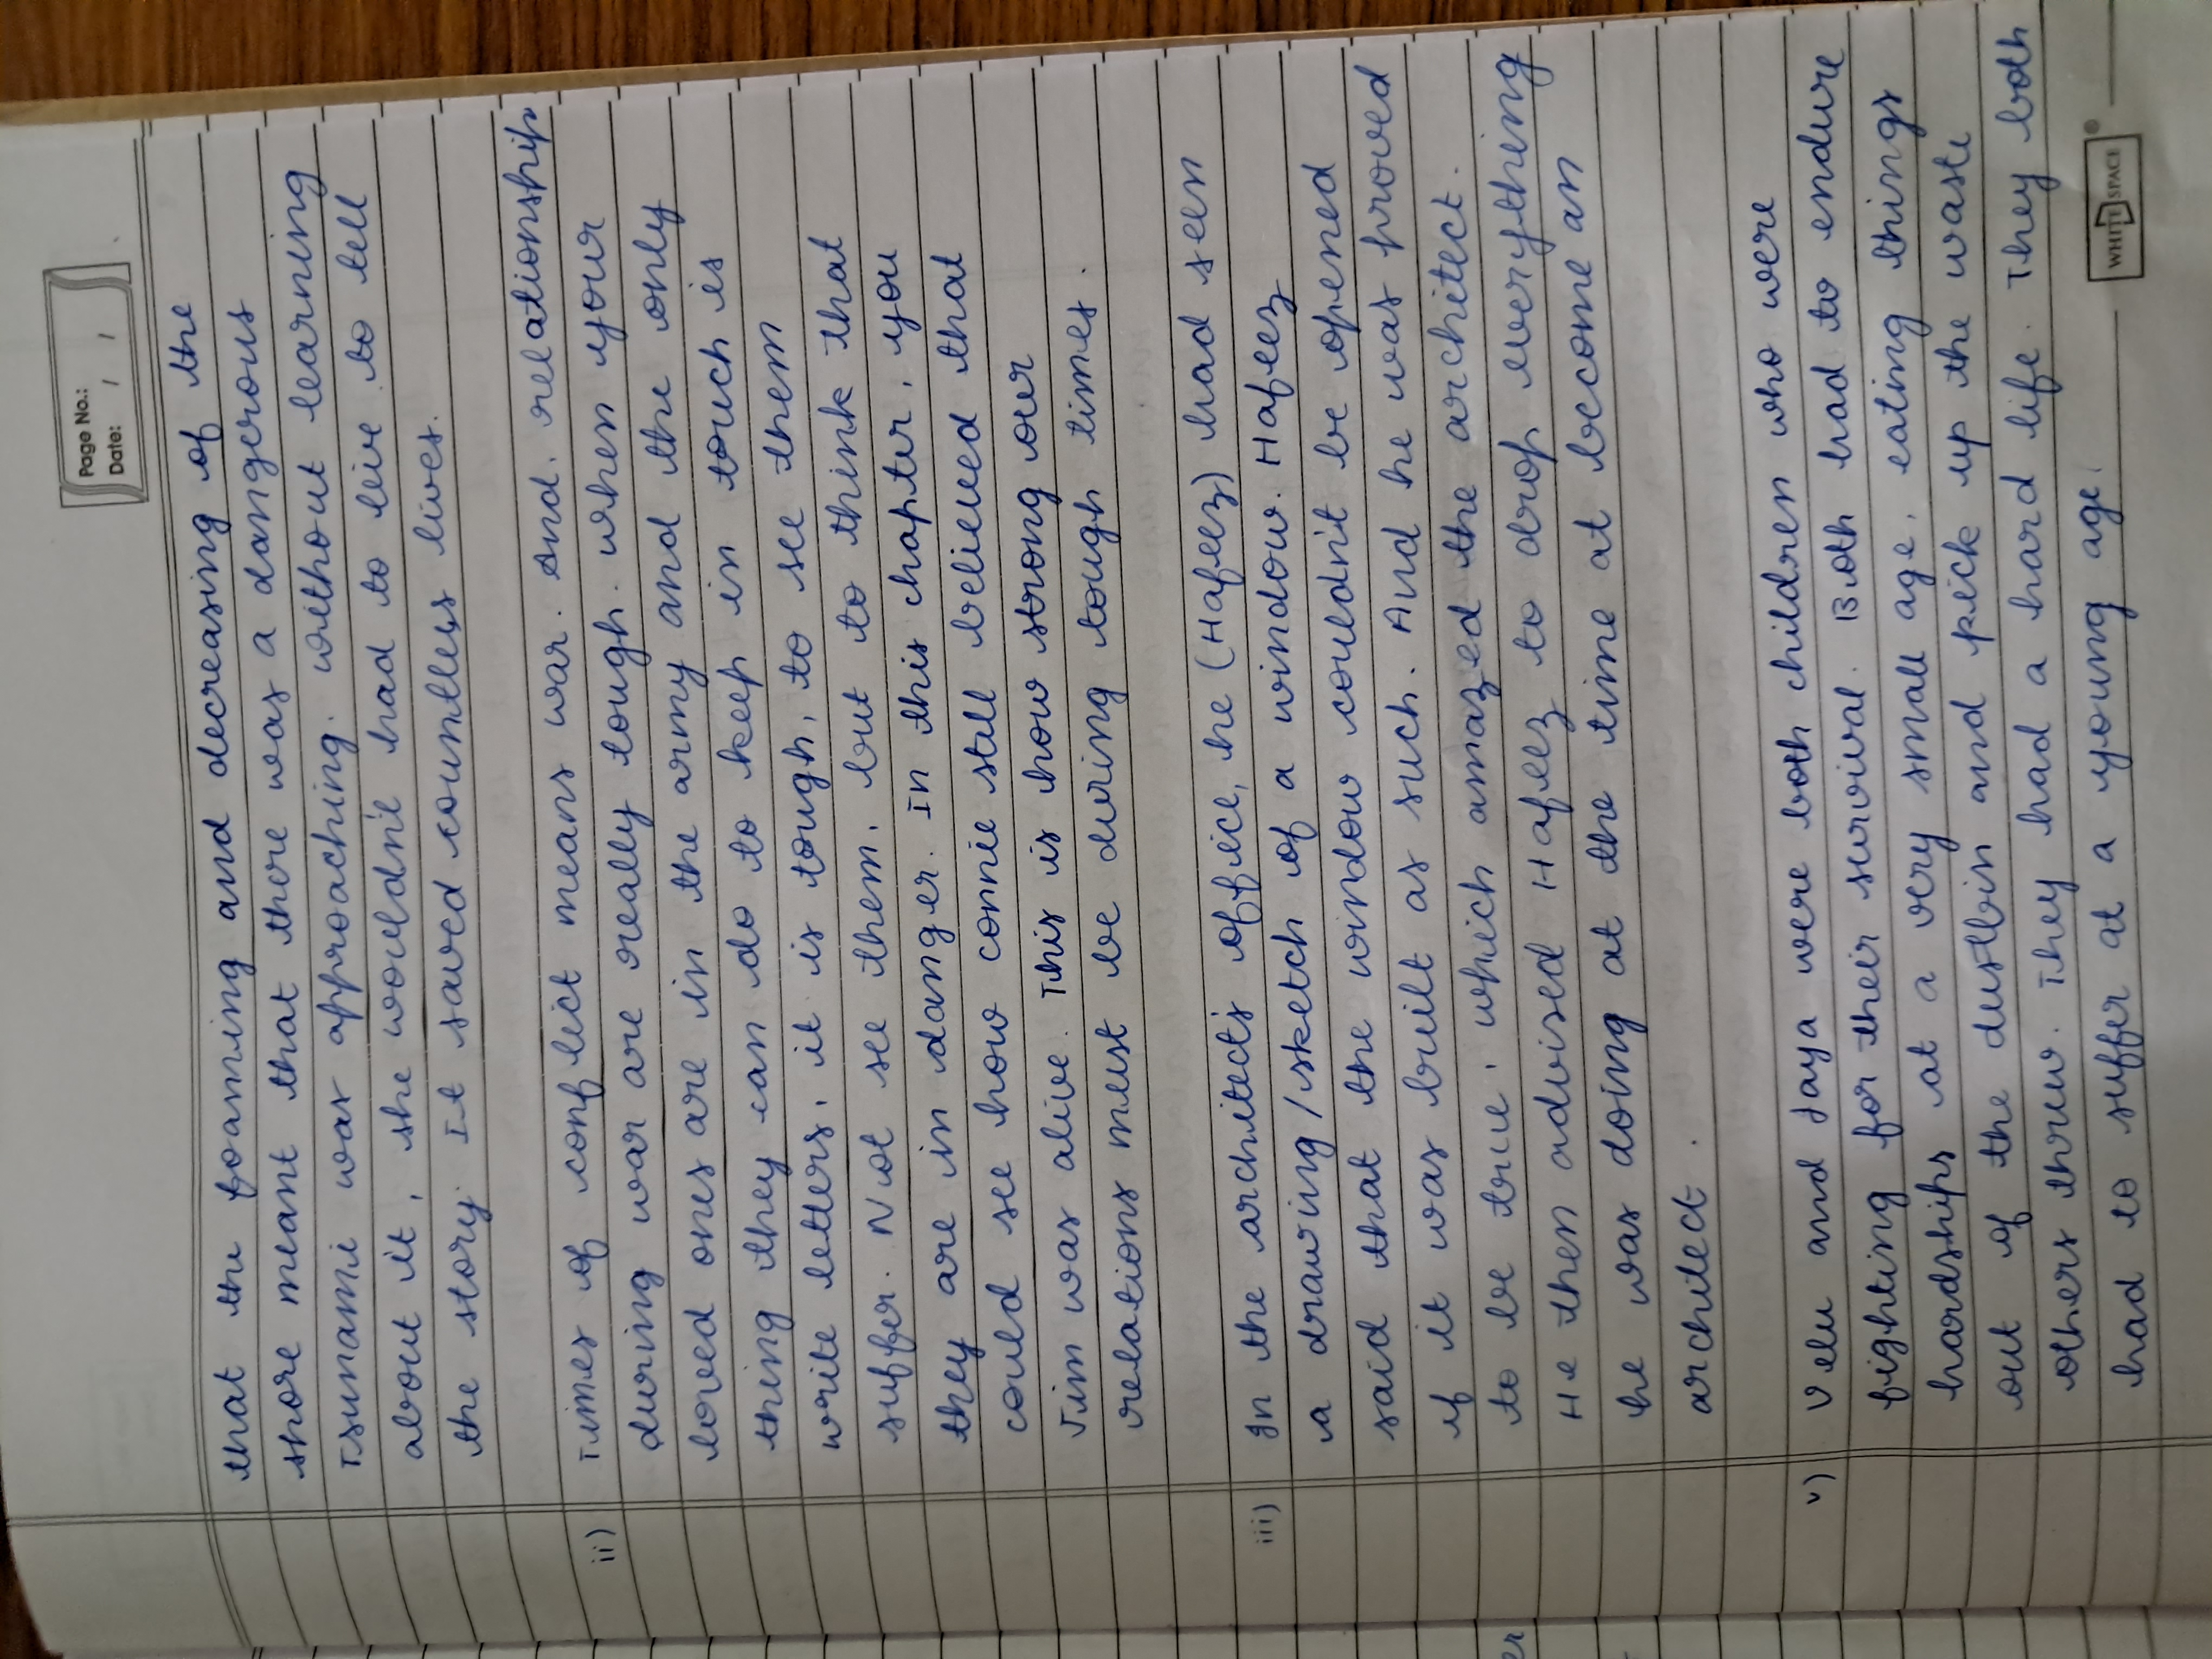 Page No.:
Date: / /
that the foaming and decreasing of the
shore meant that there was a dangerous
Tsunami was approaching. without learning
about it, she wouldn't had to live to tell
the story. It saved countless lives.
ii) Times of conflict means war. And, relationship
during war are really tough. when your
loved ones are in the army and the only
thing they can do to keep in touch is
write letters, it is tough, to see them
suffer. Not see them, but to think that
they are in danger. In this chapter, you
could see how connie still believed that
Jim was alive. This is how strong our
relations must be during tough times.
iii) In the architect's office, he (Hafeez) had seen
a drawing/sketch of a window. Hafeez
said that the window couldn't be opened
if it was built as such. And he was proved
to be true, which amazed the architect.
He then advised Hafeez to drop everything
he was doing at the time at become an
architect.
v) Velu and Jaya were both children who were
fighting for their survival. Both had to endure
hardships at a very small age, eating things
out of the dustbin and pick up the waste
others threw. They had a hard life. They both
had to suffer at a young age.
WHITE SPACE®
er